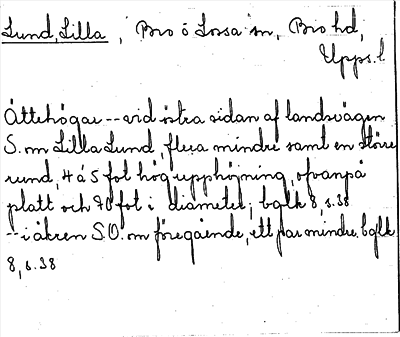 Lund, Lilla, Bro ö Lossa sn, Bro hd,
Upps. l.
Ättehögar -- vid östra sidan af landsvägen
S. om Lilla Lund, flera mindre samt en större
rund, 4 à 5 fot hög upphöjning, ofvanpå
platt och 70 fot i diameter; bglk 8, s. 38
-- i åkren S.O. om föregående, ett par mindre. bglk
8, s. 38